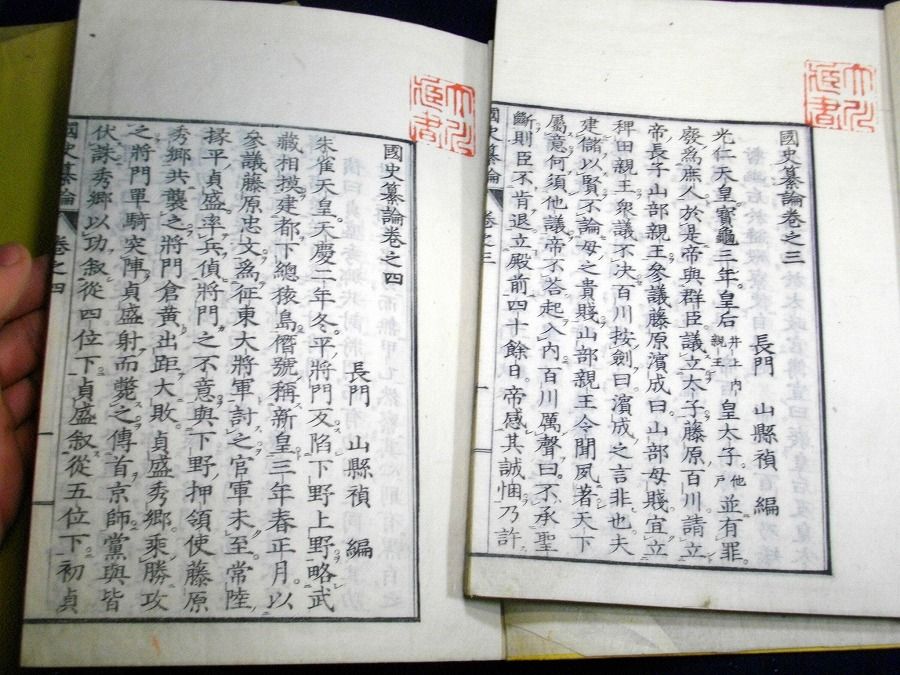 國史纂論卷之三
長門 山縣禎 編
光仁天皇寶龜三年皇后井上内親王皇太子他戸並有罪。
廢爲庶人於是帝與群臣議立太子藤原百川請立
帝長子山部親王參議藤原濱成曰山部母賤宜立
稗田親王衆議不決百川按劍曰濱成之言非也夫
建儲以賢不論母之貴賤山部親王令聞夙著天下
屬意何須他議帝不荅起入内百川厲聲曰不承聖
斷則臣不肯退立殿前四十餘日帝感其誠悃乃許
國史纂論 卷之三
國史纂論卷之四
長門 山縣禎 編
朱雀天皇天慶二年冬平將門反陷下野上野略武
藏相摸建都下總猿島僭號稱新皇三年春正月以
參議藤原忠文爲征東大將軍討之官軍未至常陸
掾平貞盛率兵偵將門之不意與下野押領使藤原
秀郷共襲之將門倉黄出距大敗貞盛秀郷乘勝攻
之將門單騎突陣貞盛射而斃之傳首京師黨與皆
伏誅秀郷以功叙從四位下貞盛叙從五位下初貞
國史纂論 卷之四